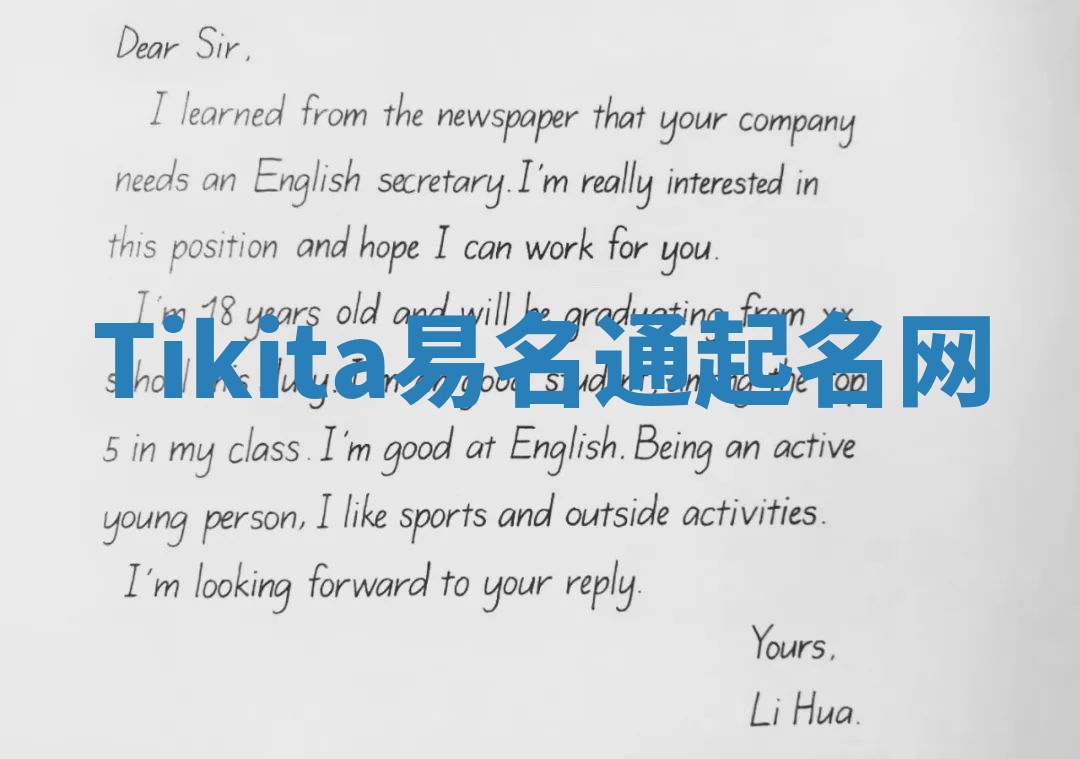 Dear Sir,
I learned from the newspaper that your company
needs an English secretary. I'm really interested in
this position and hope I can work for you.
I'm 18 years old and will be graduating from xx
Tikita易名通起名网
school this July. I'm a good student, among the top
5 in my class. I'm good at English. Being an active
young person, I like sports and outside activities.
I'm looking forward to your reply.
Yours,
Li Hua.